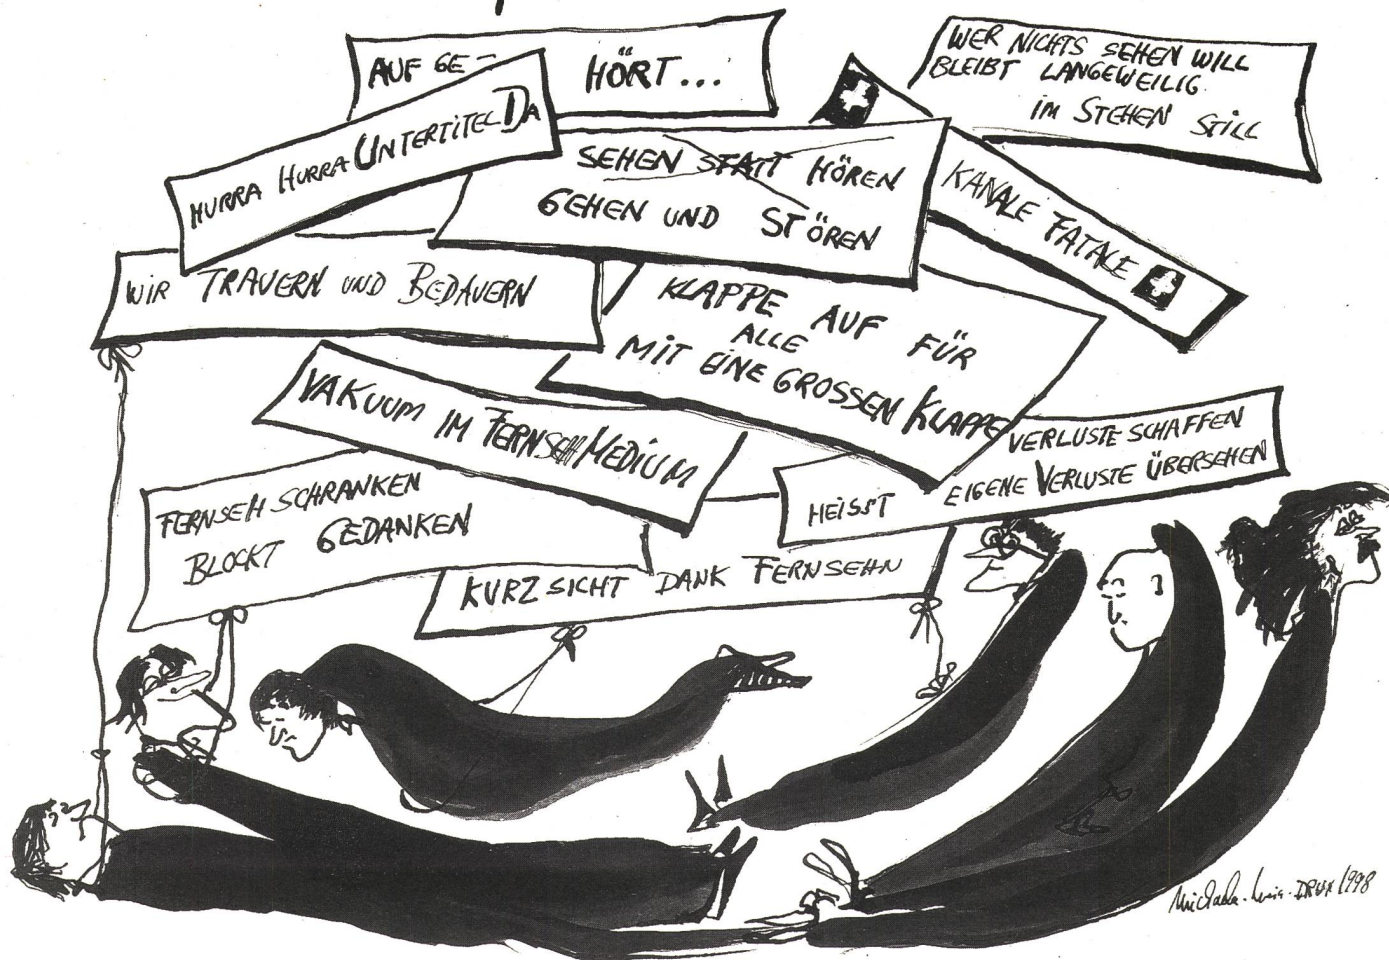 AUF GE- HÖRT...
WER NICHTS SEHEN WILL
BLEIBT LANGEWEILIG
IM STEHEN STILL
HURRA HURRA UNTERTITEL DA
SEHEN STATT HÖREN
GEHEN UND STÖREN
KANALE FATALE
WIR TRAUERN UND BEDAUERN
KLAPPE AUF FÜR
ALLE
MIT EINE GROSSEN KLAPPE
VAKUUM IM FERNSEHMEDIUM
VERLUSTE SCHAFFEN
HEISST EIGENE VERLUSTE ÜBERSEHEN
FERNSEHSCHRANKEN
BLOCKT GEDANKEN
KURZSICHT DANK FERNSEHN
1998